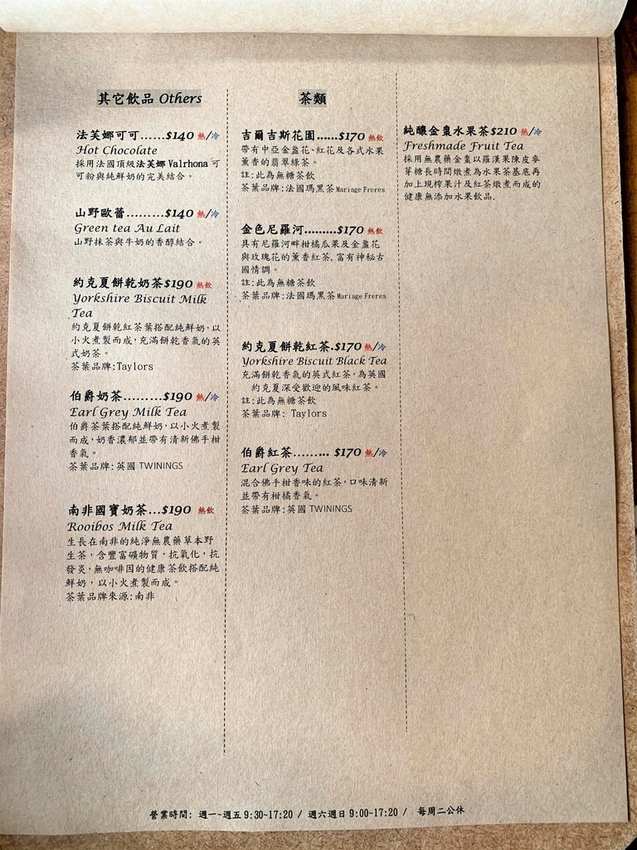 其它飲品 Others
法芙娜可可......$140 熱/冷
Hot Chocolate
採用法國頂級法芙娜 Valrhona 可
可粉與純鮮奶的完美結合。
山野歐蕾.........$140 熱/冷
Green tea Au Lait
山野抹茶與牛奶的香醇結合。
約克夏餅乾奶茶$190 熱飲
Yorkshire Biscuit Milk
Tea
約克夏餅乾紅茶葉搭配純鮮奶,以
小火煮製而成,充滿餅乾香氣的英
式奶茶。
茶葉品牌:Taylors
伯爵奶茶.........$190 熱/冷
Earl Grey Milk Tea
伯爵茶葉搭配純鮮奶,以小火煮製
而成,奶香濃郁並帶有清新佛手柑
香氣。
茶葉品牌:英國 TWININGS
南非國寶奶茶...$190 熱飲
Rooibos Milk Tea
生長在南非的純淨無農藥草本野
生茶,含豐富礦物質,抗氧化,抗
發炎,無咖啡因的健康茶飲搭配純
鮮奶,以小火煮製而成。
茶葉品牌來源:南非
茶類
吉爾吉斯花園......$170 熱飲
帶有中亞金盞花、紅花及各式水果
薰香的翡翠綠茶。
註:此為無糖茶飲
茶葉品牌:法國瑪黑茶Mariage Freres
金色尼羅河.........$170 熱飲
具有尼羅河畔柑橘瓜果及金盞花
與玫瑰花的薰香紅茶,富有神秘古
國情調。
註:此為無糖茶飲
茶葉品牌:法國瑪黑茶Mariage Freres
約克夏餅乾紅茶.$170 熱/冷
Yorkshire Biscuit Black Tea
充滿餅乾香氣的英式紅茶,為英國
約克夏深受歡迎的風味紅茶。
註:此為無糖茶飲
茶葉品牌: Taylors
伯爵紅茶......... $170 熱/冷
Earl Grey Tea
混合佛手柑香味的紅茶,口味清新
並帶有柑橘香氣。
茶葉品牌:英國 TWININGS
純釀金棗水果茶$210 熱/冷
Freshmade Fruit Tea
採用無農藥金棗以羅漢果陳皮麥
芽糖長時間燉煮為水果茶基底再
加上現榨果汁及紅茶燉煮而成的
健康無添加水果飲品.
營業時間: 週一~週五 9:30~17:20 / 週六週日 9:00~17:20 / 每周二公休